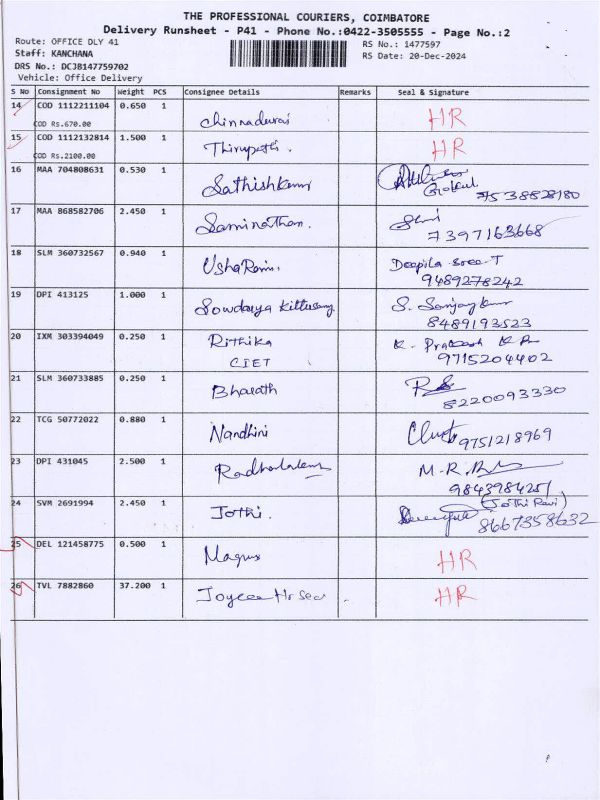 THE PROFESSIONAL COURIERS, COIMBATORE
Delivery Runsheet - P41 - Phone No.:0422-3505555 - Page No.:2
Route: OFFICE DLY 41
RS No.: 1477597
Staff: KANCHANA
RS Date: 20-Dec-2024
DRS No.: DCJB147759702
Vehicle: Office Delivery
S No Consignment No Weight PCS Consignee Details Remarks Seal & Signature
14 COD 1112211104 0.650 1 Chinnadurai HR
COD Rs.670.00
15 COD 1112132814 1.500 1 Thirupathi. HR
COD Rs.2100.00
16 MAA 704808631 0.530 1 Sathishkumar Gokul
7538828180
17 MAA 868582706 2.450 1 Saminathan.
7397163668
18 SLM 360732567 0.940 1 UshaRani. Deepila Sree T
9489278242
19 DPI 413125 1.000 1 Sowdarya Kittusamy S. Sanjay Kumar
8489193523
20 IXM 303394049 0.250 1 Rithika K. Prakash K R
CIET 9715204402
21 SLM 360733885 0.250 1 Bharath
8220093330
22 TCG 50772022 0.880 1 Nandhini
9751218969
23 DPI 431045 2.500 1 M.R.
9843984251
24 SVM 2691994 2.450 1 Jothi. (Jothi Ravi)
8667358632
25 DEL 121458775 0.500 1 HR
26 TVL 7882860 37.200 1 Joycee Hr Sec HR